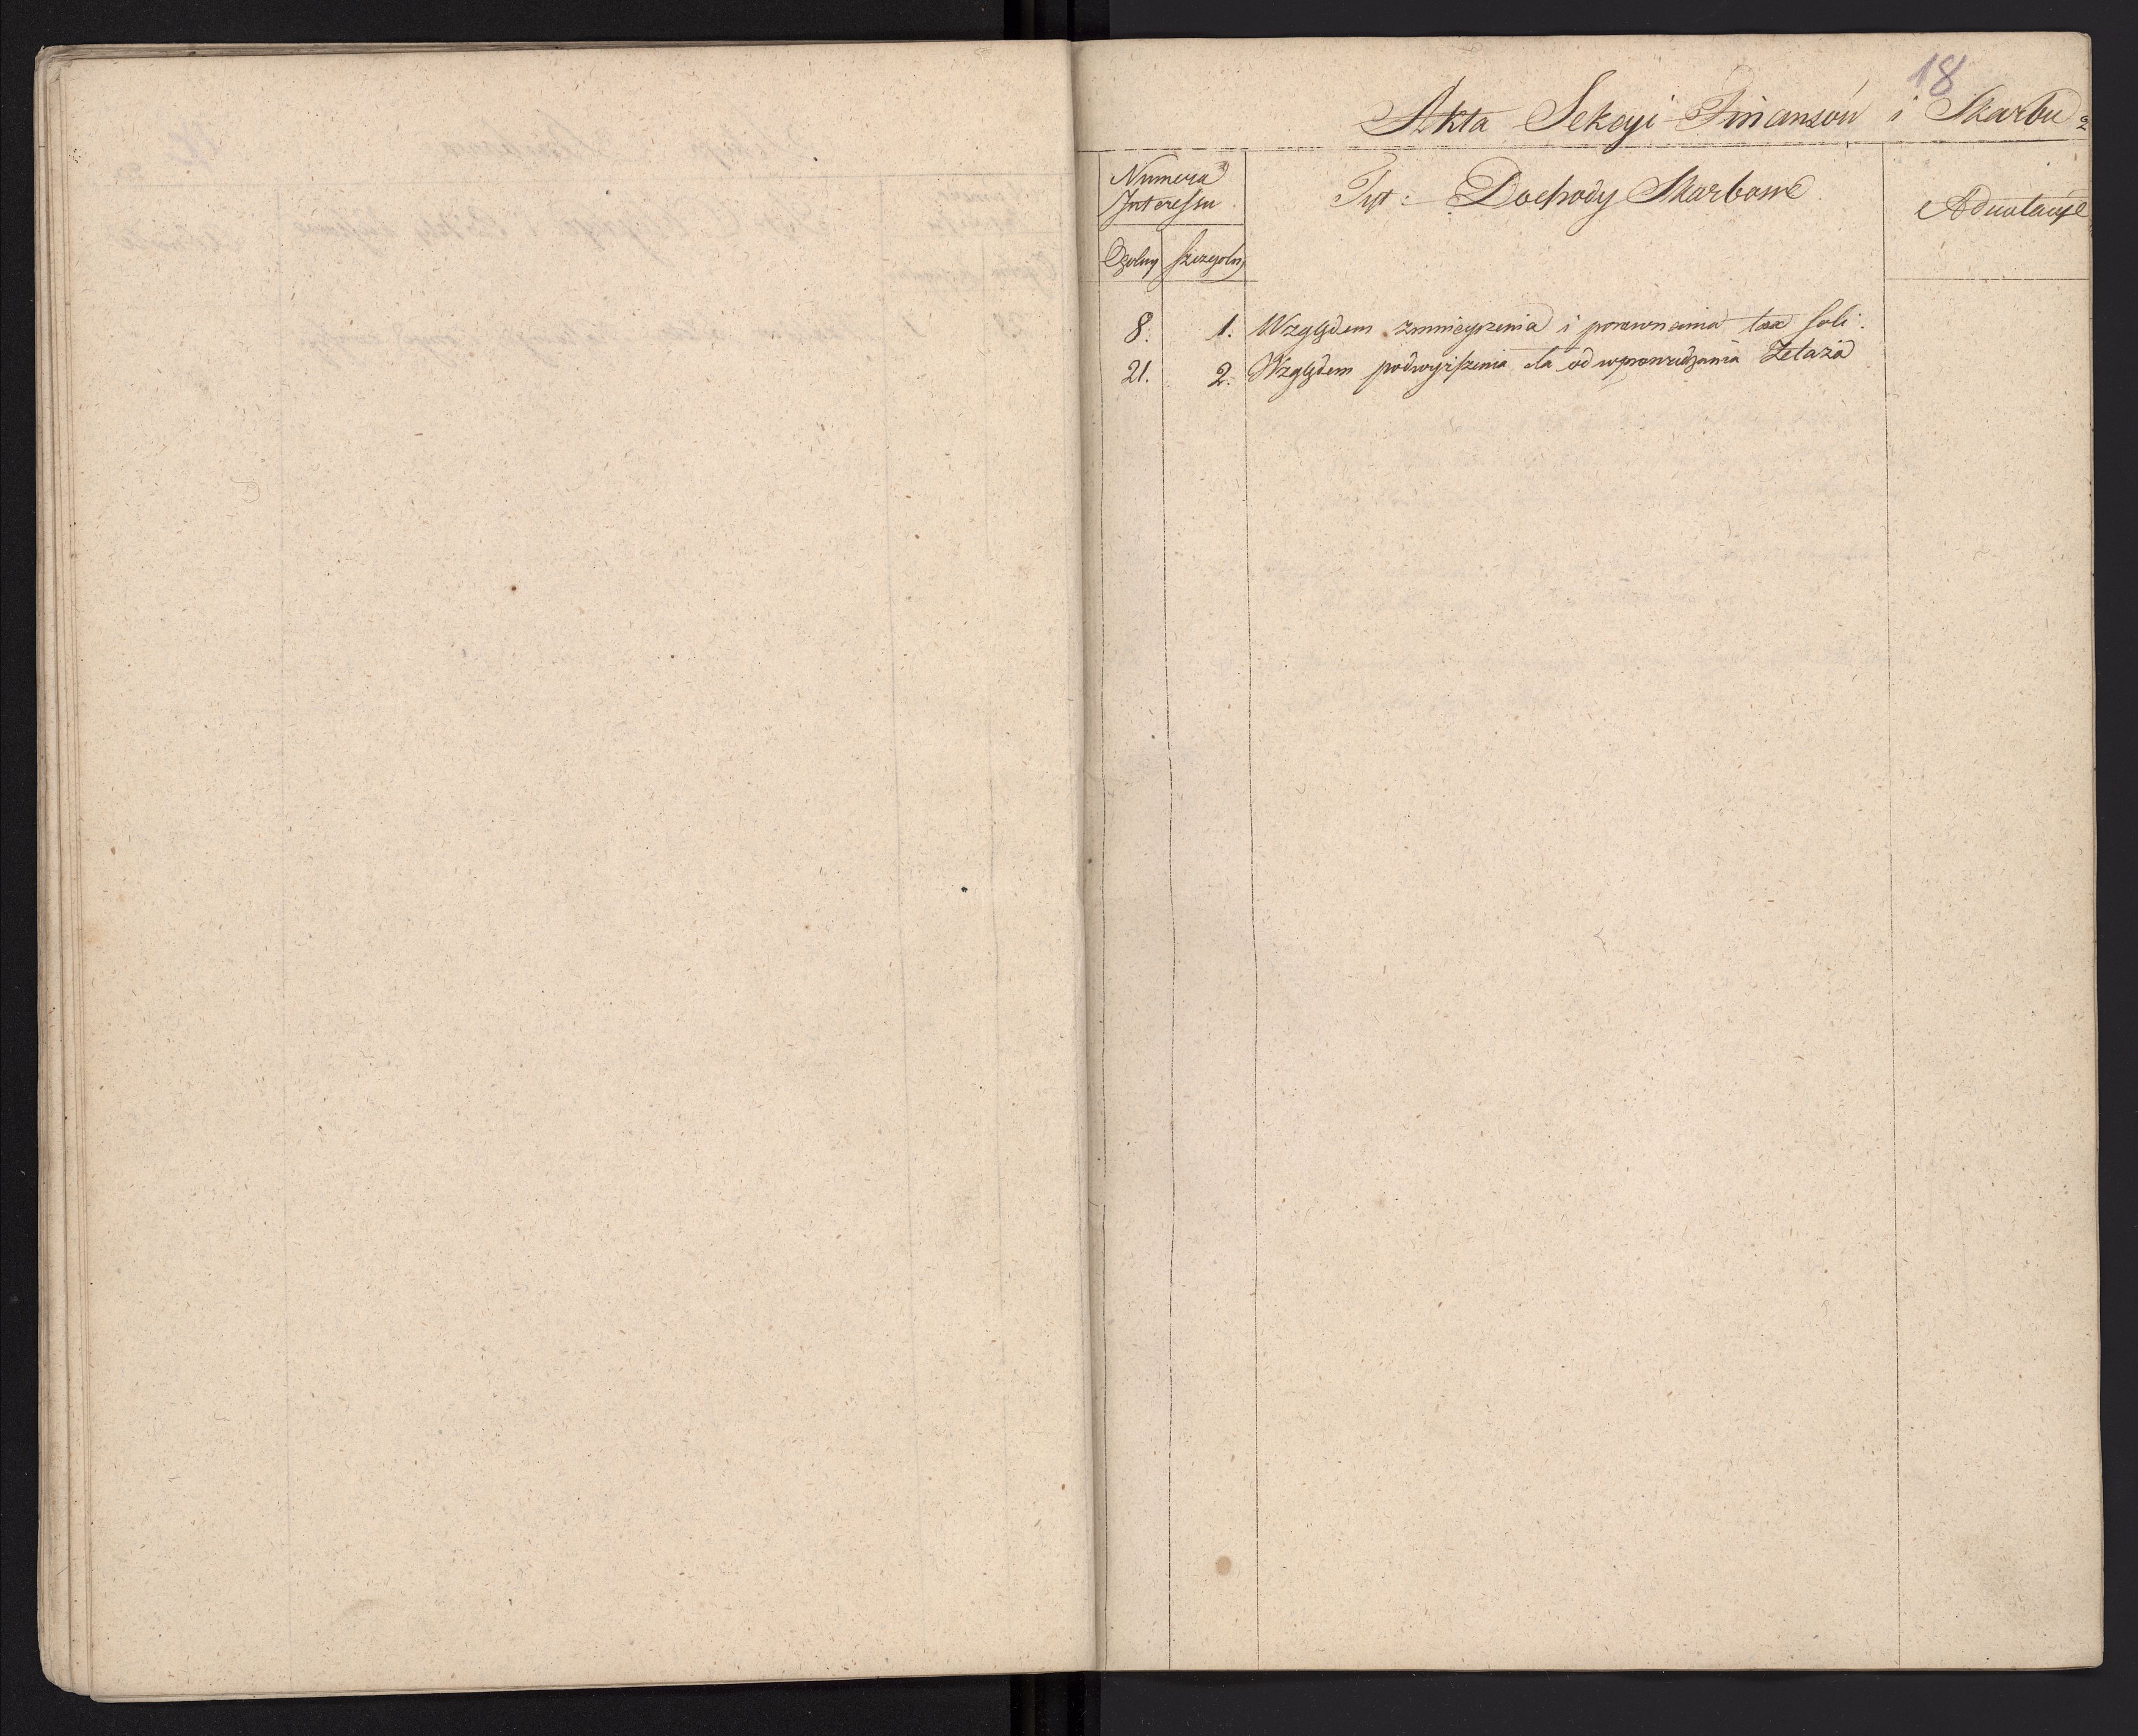 18
Akta Sekcyi Finansów i Skarbu
Numera
Interessu
Tyt: Dochody Skarbowe
Adnotacye
Ogolny
szczegolny
8. 1. Względem zmnieyszenia i porownania tax soli.
21. 2. Względem podwyższenia cła od wprowadzania Żelaza